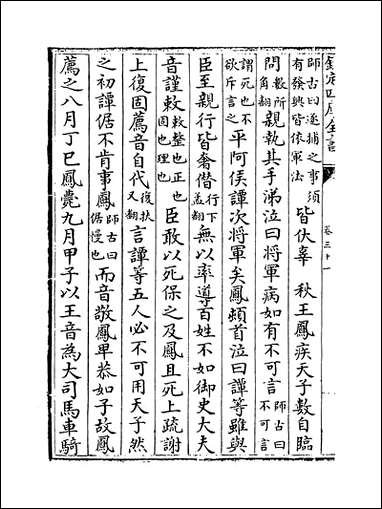 欽定四庫全書 卷三十一
師古曰逐捕之事須有發興皆依軍法 皆伏辜 秋王鳳疾天子數自臨
問 數所角翻 親執其手涕泣曰將軍病如有不可言 師古曰不可言
謂死也不欲斥言之 平阿侯譚次將軍矣鳳頓首泣曰譚等雖與
臣至親行皆奢僭 行下孟翻 無以率導百姓不如御史大夫
音謹敕 敕整也正也固也理也 臣敢以死保之及鳳且死上疏謝
上復固薦音自代 復扶又翻 言譚等五人必不可用天子然
之初譚倨不肯事鳳 師古曰倨慢也 而音敬鳳卑恭如子故鳳
薦之八月丁巳鳳薨九月甲子以王音為大司馬車騎